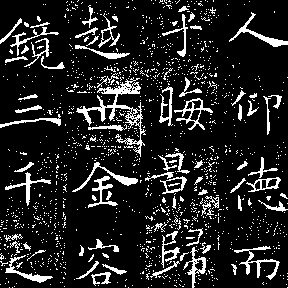 人仰徳而
乎晦影歸
越世金容
鏡三千之